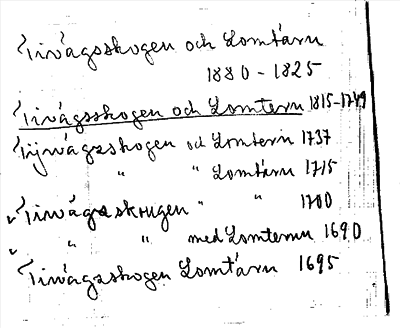 Tivågsskogen och Lomtärn
1880 - 1825
Tivågsskogen och Lomtern 1815-1749
Tijvågsskogen och Lomtern 1737
" " Lomtärn 1715
✓ Tivvågsskougen " " 1700
✓ " " med Lomternu 1690
Tivågsskogen Lomtärn 1695